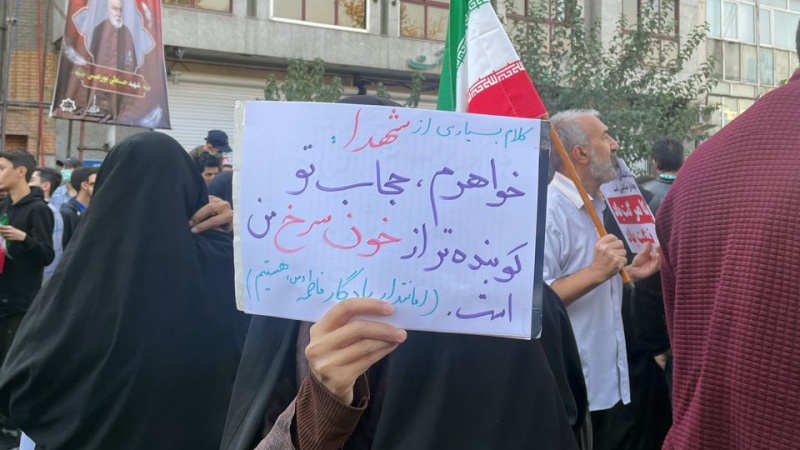 کلام بسیاری از شهدا:
خواهرم، حجاب تو
کوبنده تر از خون سرخ من
است. (امانتدار یادگار فاطمه (س) هستیم)
شهید حسنعلی پورعیسی